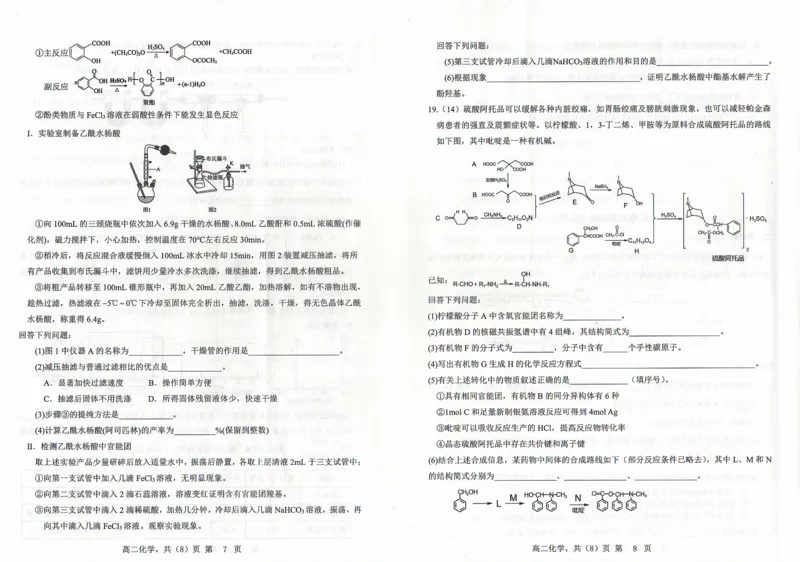 ①主反应 COOH OH +(CH₃CO)₂O H₂SO₄ △ COOH OCOCH₃ +CH₃COOH
副反应 COOH OH H₂SO₄ △ 聚酯 +(n-1)H₂O
②酚类物质与 FeCl₃ 溶液在弱酸性条件下能发生显色反应
I．实验室制备乙酰水杨酸
A 图1
布氏漏斗 K 抽气 吸滤瓶 图2
①向 100mL 的三颈烧瓶中依次加入 6.9g 干燥的水杨酸、8.0mL 乙酸酐和 0.5mL 浓硫酸(作催
化剂)，磁力搅拌下，小心加热，控制温度在 70℃左右反应 30min。
②稍冷后，将反应混合液缓慢倒入 100mL 冰水中冷却 15min，用图 2 装置减压抽滤，将所
有产品收集到布氏漏斗中，滤饼用少量冷水多次洗涤，继续抽滤，得到乙酰水杨酸粗品。
③将粗产品转移至 100mL 锥形瓶中，再加入 20mL 乙酸乙酯，加热溶解，如有不溶物出现，
趁热过滤，热滤液在 −5℃～0℃下冷却至固体完全析出，抽滤，洗涤，干燥，得无色晶体乙酰
水杨酸，称重得 6.4g。
回答下列问题：
(1)图 1 中仪器 A 的名称为____________，干燥管的作用是____________________。
(2)减压抽滤与普通过滤相比的优点是____________。
A．显著加快过滤速度 B．操作简单方便
C．抽滤后固体不用洗涤 D．所得固体残留液体少，快速干燥
(3)步骤③的提纯方法是____________。
(4)计算乙酰水杨酸(阿司匹林)的产率为_________%(保留到整数)
II．检测乙酰水杨酸中官能团
取上述实验产品少量研碎后放入适量水中，振荡后静置，各取上层清液 2mL 于三支试管中：
①向第一支试管中加入几滴 FeCl₃ 溶液，无明显现象。
②向第二支试管中滴入 2 滴石蕊溶液，溶液变红证明含有官能团羧基。
③向第三支试管中滴入 2 滴稀硫酸，加热几分钟，冷却后滴入几滴 NaHCO₃ 溶液，振荡，再
向其中滴入几滴 FeCl₃ 溶液，观察实验现象。
高二化学，共（8）页 第 7 页
回答下列问题：
(5)第三支试管冷却后滴入几滴NaHCO₃溶液的作用和目的是_________________________。
(6)根据现象___________________________________，证明乙酰水杨酸中酯基水解产生了
酚羟基。
19.（14）硫酸阿托品可以缓解各种内脏绞痛，如胃肠绞痛及膀胱刺激现象，也可以减轻帕金森
病患者的强直及震颤症状等。以柠檬酸、1，3-丁二烯、甲胺等为原料合成硫酸阿托品的路线
如下图，其中吡啶是一种有机碱。
A HOOC COOH HO COOH
B HOOC O COOH
C O H H O CH₃NH₂ D
E NaBH₄ F
G CH₂OH CHCOOH CH₃C-Cl 吡啶 C₁₁H₁₂O₄ H
H₂SO₄ 2 ·H₂SO₄ 硫酸阿托品
已知： R-CHO + R₁-NH₂ → R-CH-NH-R₁ OH
回答下列问题：
(1)柠檬酸分子 A 中含氧官能团名称为_____________。
(2)有机物 D 的核磁共振氢谱中有 4 组峰，其结构简式为____________________。
(3)有机物 F 的分子式为_________，分子中含有______个手性碳原子。
(4)写出有机物 G 生成 H 的化学反应方程式________________________________________。
(5)有关上述转化中的物质叙述正确的是_____________（填序号）。
①具有相同官能团，有机物 B 的同分异构体有 6 种
②1mol C 和足量新制银氨溶液反应可得到 4mol Ag
③吡啶可以吸收反应生产的 HCl，提高反应物转化率
④晶态硫酸阿托品中存在共价键和离子键
(6)结合上述合成信息，某药物中间体的合成路线如下（部分反应条件已略去），其中 L、M 和 N
的结构简式分别为_______________、_______________、_______________。
CH₂OH → L M HO-CH-N-CH₃ N 吡啶 O=C-O-CH-N-CH₃
高二化学，共（8）页 第 8 页